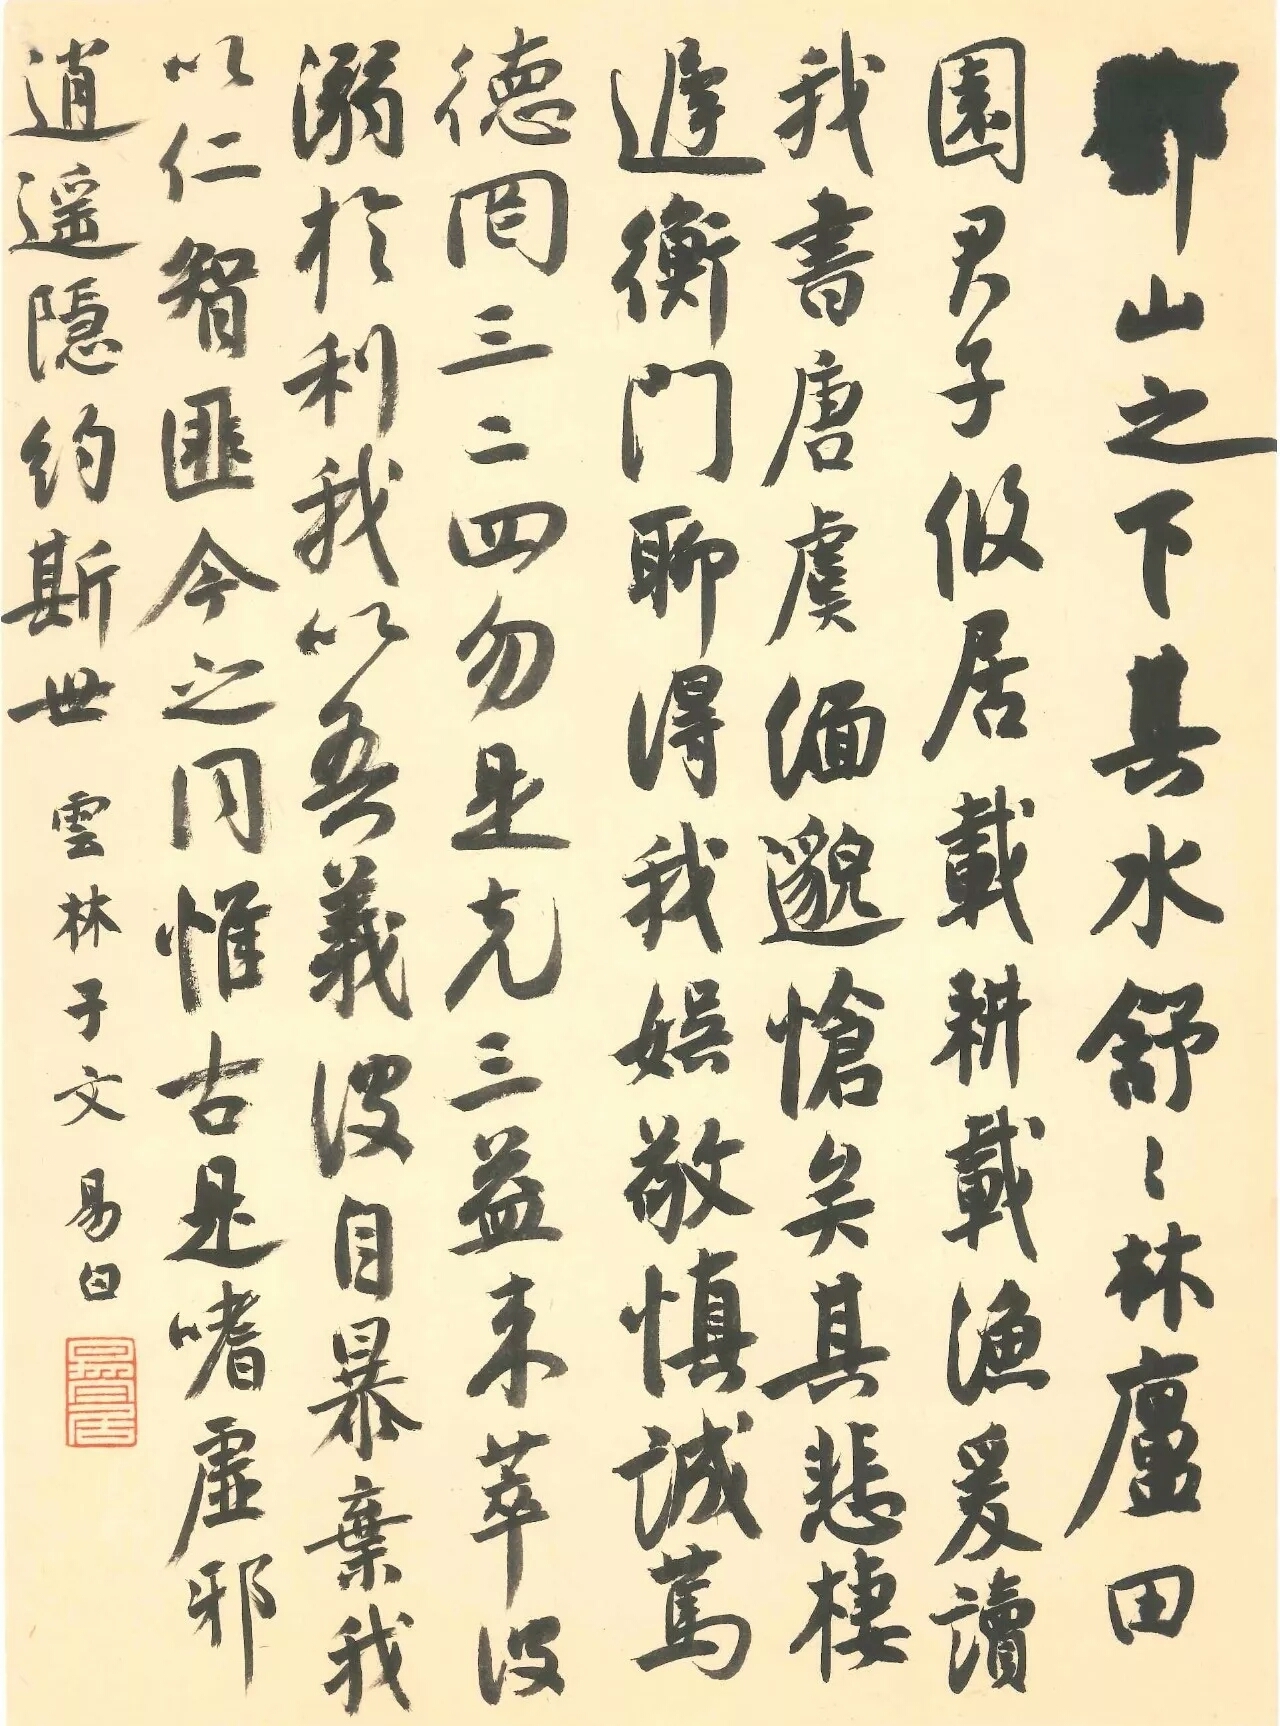 山之下其水舒〻林廬田
園君子攸居載耕載漁爰讀
我書唐虞緬邈愴矣其悲棲
遲衡門聊得我娱敬慎誠篤
德罔三二四勿是克三益来萃彼
溺於利我以吾義彼自暴棄我
以仁智匪今之同惟古是嗜虛邪
逍遥隱約斯世 雲林子文 易白